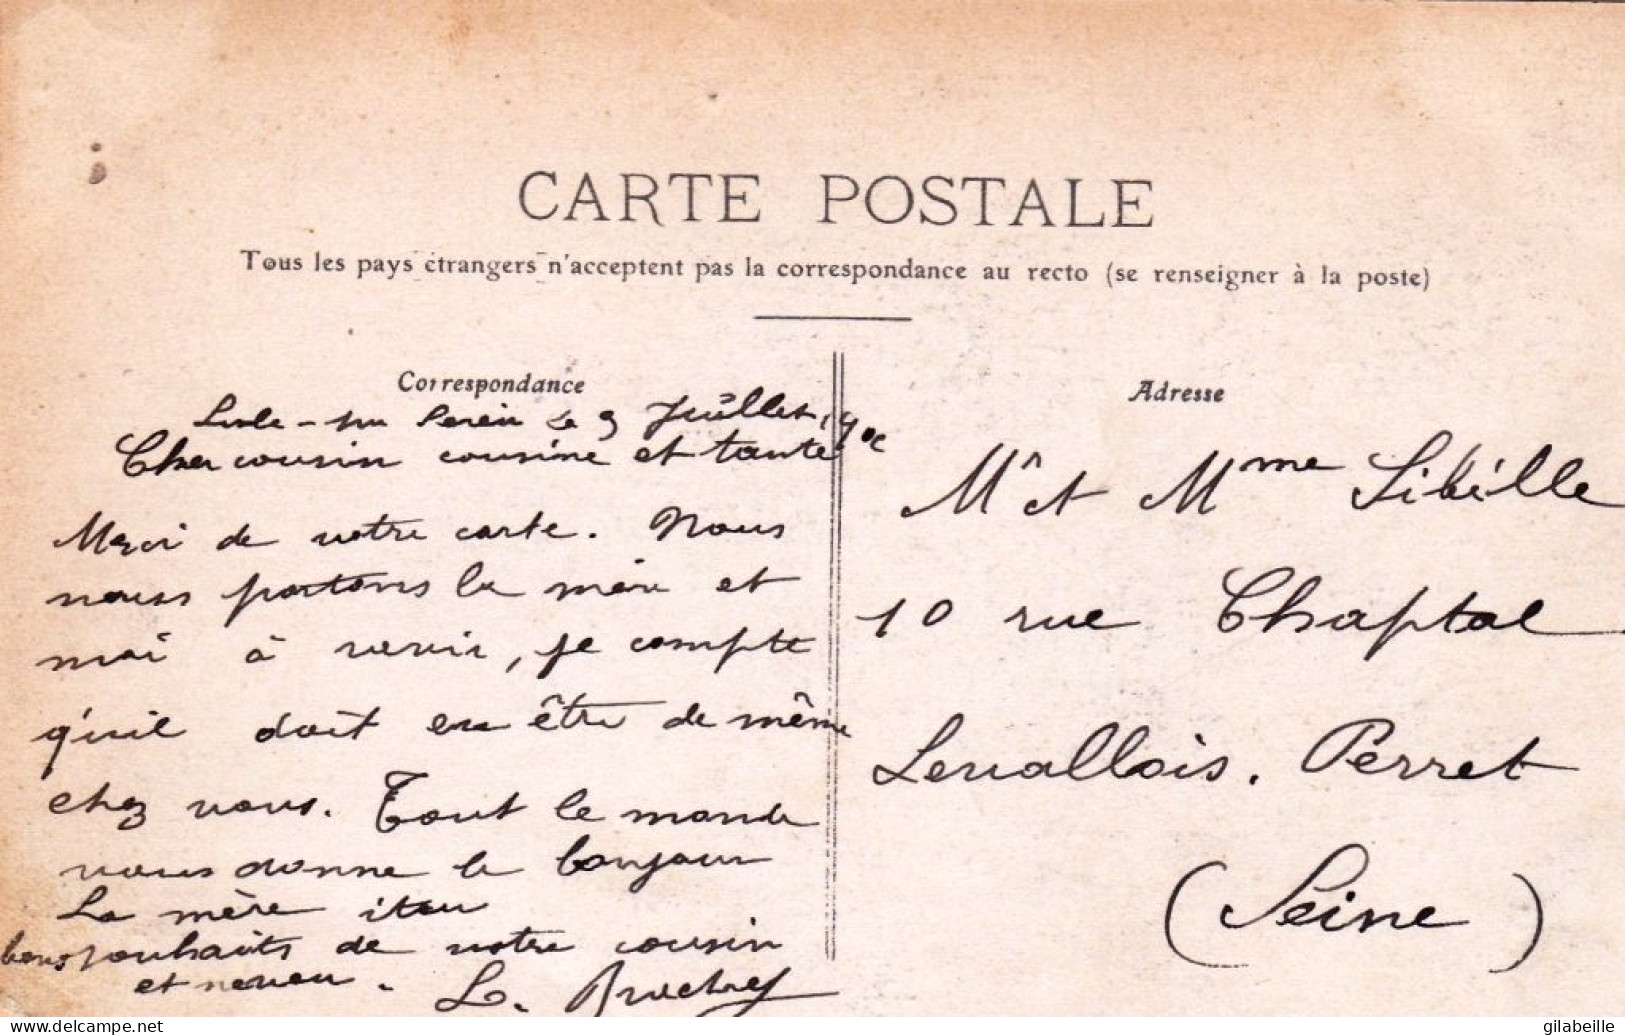 CARTE POSTALE
Tous les pays étrangers n'acceptent pas la correspondance au recto (se renseigner à la poste)
Correspondance
le 9 Juillet
Cher cousin cousine et tante
Merci de votre carte. Nous
nous portons la mère et
moi à ravir, je compte
qu'il doit en être de même
chez vous. Tout le monde
vous donne le bonjour
La mère itou
bons souhaits de votre cousin
et neveu. L.
Adresse
Mr et Mme Sibille
10 rue Chaptal
Levallois. Perret
(Seine)
delcampe.net
gilabeille